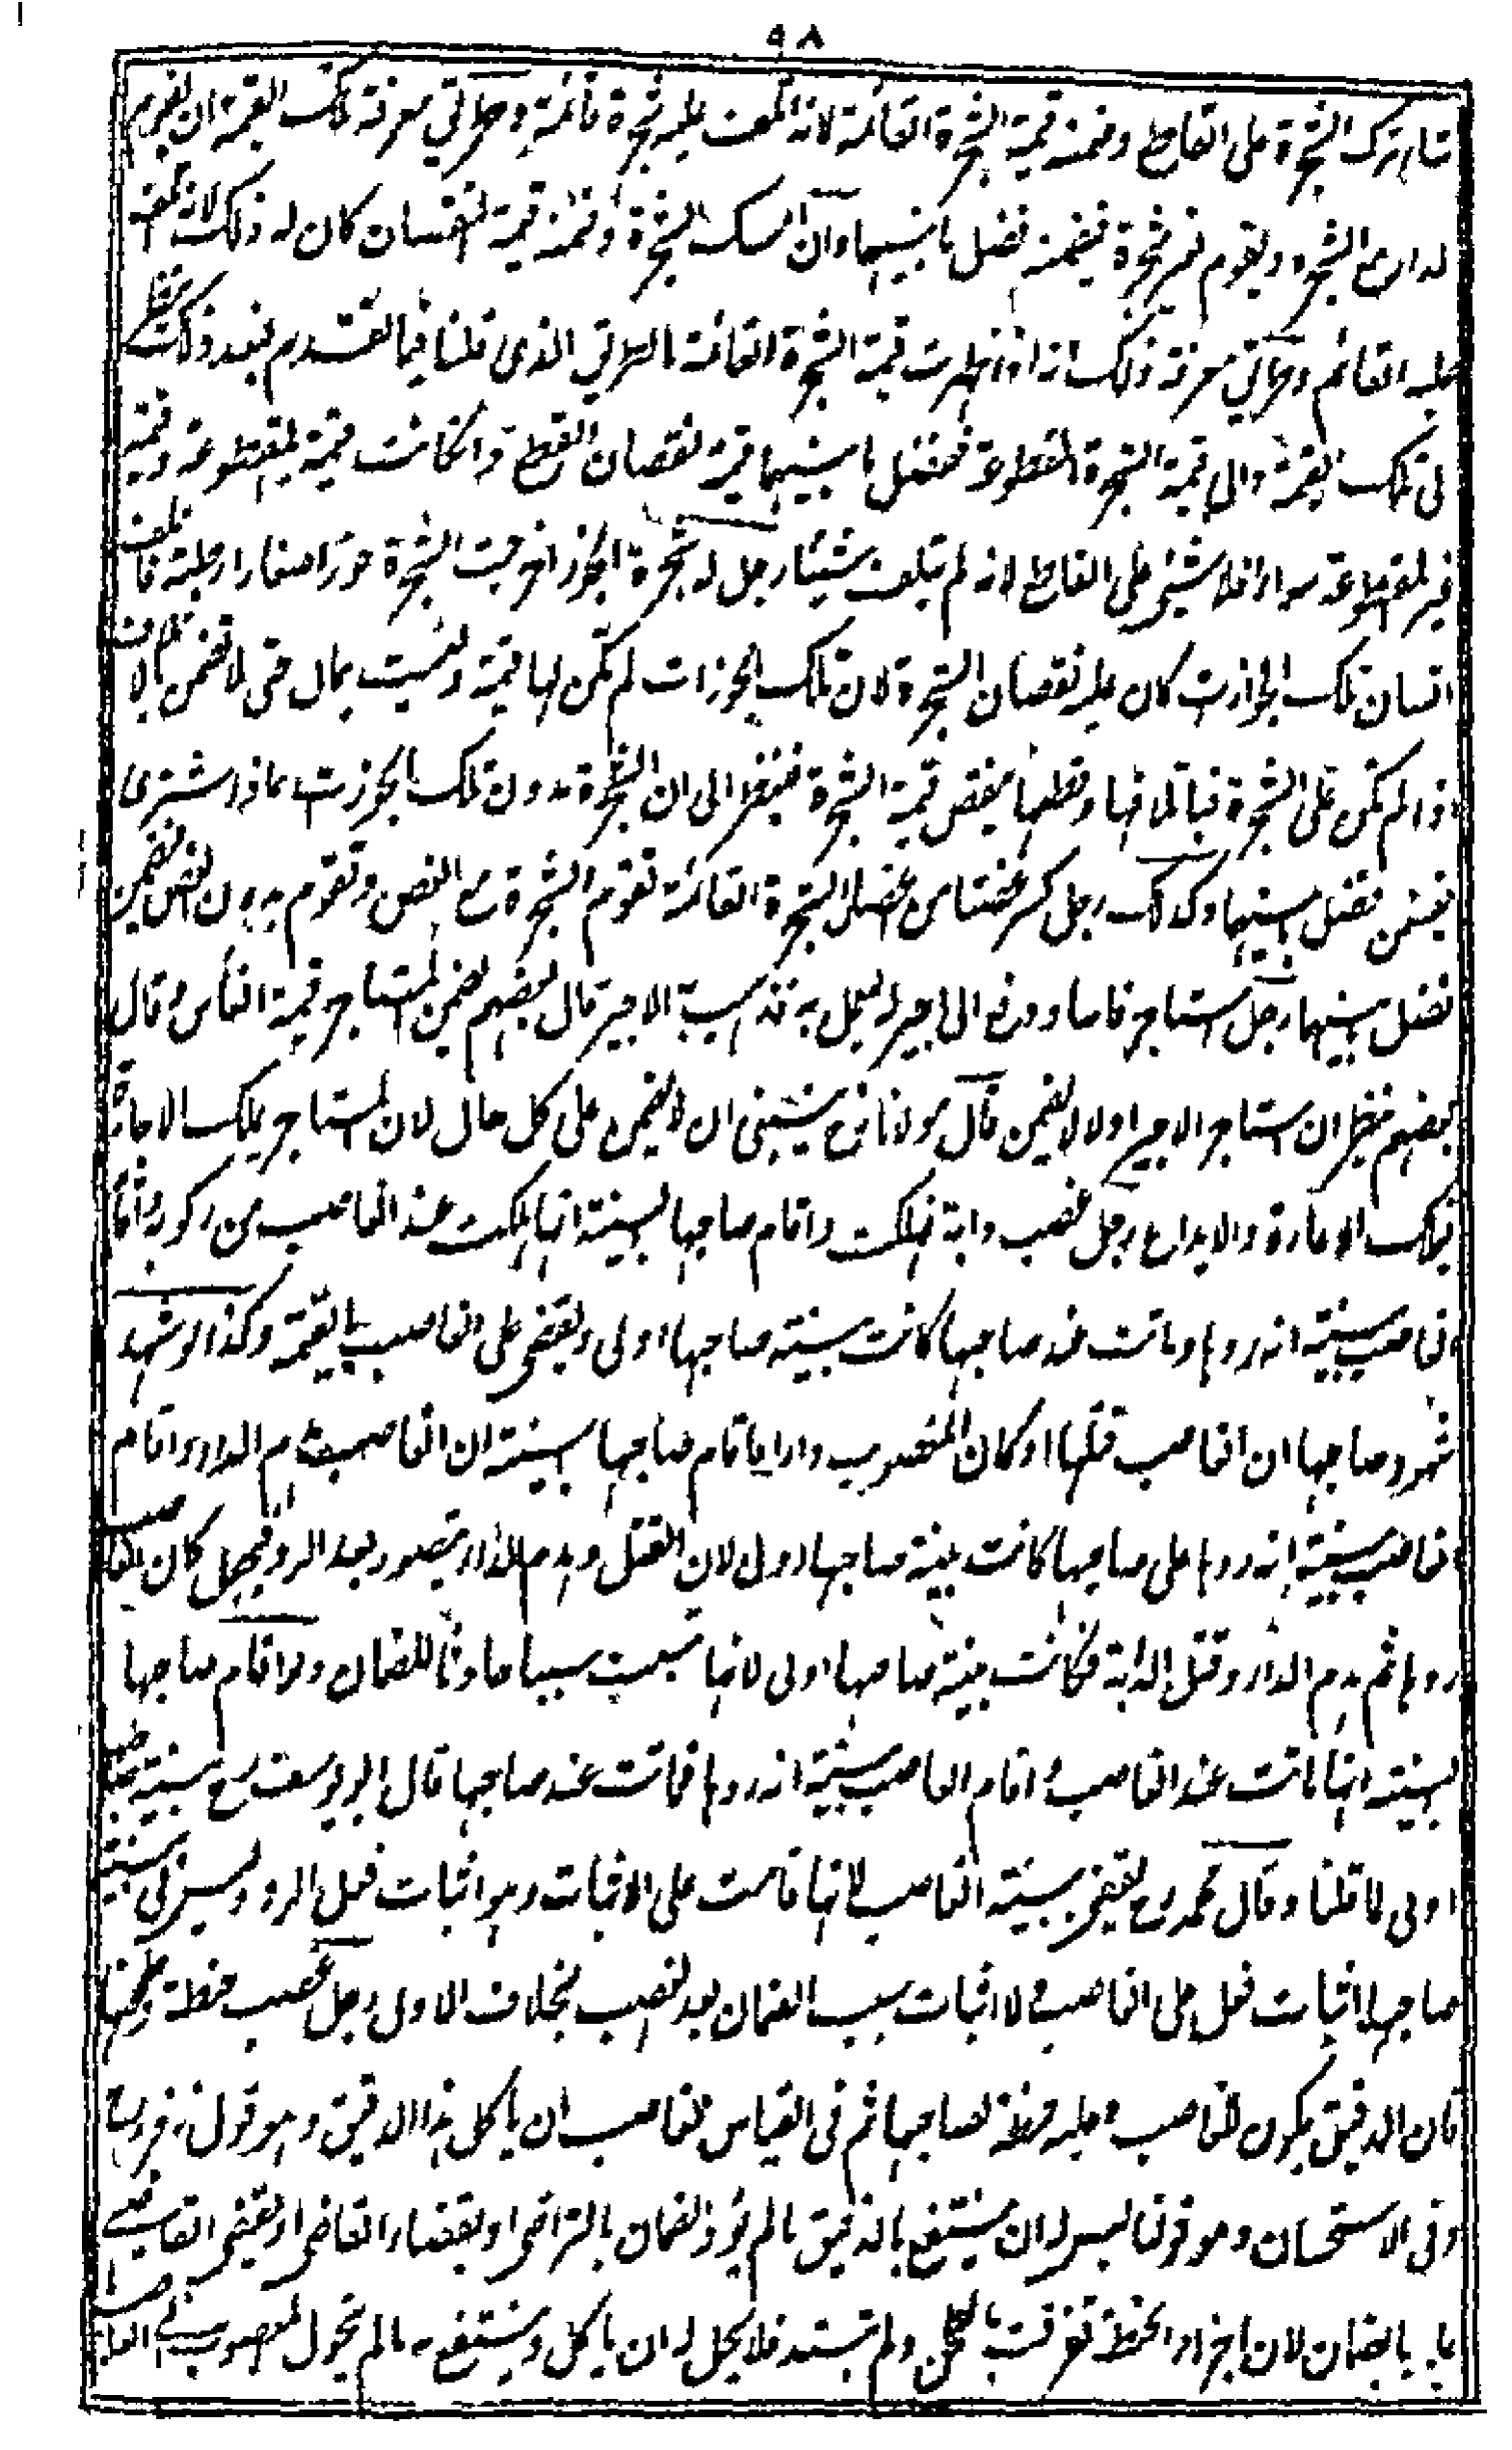 ٩٨
شاء ترك الشجرة على القاطع وضمنه قيمة الشجرة القائمة لانه اتلف عليه شجرة قائمة وطريق معرفة تلك القيمة ان تقوم
الدار مع الشجرة وتقوم بغير شجرة فيضمنه فضل ما بينهما وان امسك الشجرة وضمنه قيمة النقصان كان له ذلك لانه اتلف
عليه القائم وطريق معرفة ذلك انه اذا ظهرت قيمة الشجرة القائمة بالطريق الذى قلنا فيما تقدم فبعد ذلك ينظر
الى تلك القيمة والى قيمة الشجرة المقطوعة ففضل ما بينهما قيمة نقصان القطع وان كانت قيمة المقطوعة وقيمة
غير المقطوعة سواء فلا شئ على القاطع لانه لم يتلف شيئا رجل له شجرة الجوز اخرجت الشجرة جوزا صغارا رطبة فاتلف
انسان تلك الجوازت كان عليه نقصان الشجرة لان تلك الجوزات لم تكن لها قيمة وليست بمال حتى لا تضمن بالاتلاف
اذا لم تكن على الشجرة فباتلافها وقطعها ينقص قيمة الشجرة فينظر الى ان الشجرة بدون تلك الجوزت بماذا تشترى
فيضمن فضل بينهما وكذلك رجل كسر غصنا من اغصان الشجرة القائمة تقوم الشجرة مع الغصن وتقوم بدون الغصن فيضمن
فضل بينهما رجل استاجر فاسا ودفع الى اجير ليعمل به فذهب به الاجير قال بعضهم يضمن المستاجر قيمة الفأس وقال
بعضهم ينظر ان استاجر الاجير اولا لا يضمن قال مولانا رح ينبغى ان لا يضمن على كل حال لان المستاجر يملك الاجارة
يملك الاعارة والايداع رجل غصب دابة فهلكت واقام صاحبها البينة انها هلكت عند الغاصب من ركوبه واقام
الغاصب بينة انه ردها وماتت عند صاحبها كانت بينة صاحبها اولى ويقضى على الغاصب بالقيمة وكذا لو شهد
شهود صاحبها ان الغاصب قتلها او كان المغصوب دارا فاقام صاحبها البينة ان الغاصب هدم الدار واقام
الغاصب بينة انه ردها على صاحبها كانت بينة صاحبها اولى لان القتل وهدم الدار يتصور بعد الرد فيجعل كان الغاصب
ردها ثم هدم الدار وقتل الدابة فكانت بينة صاحبها اولى لانها تثبت سببا حادثا للضمان ولو اقام صاحبها
البينة انها ماتت عند الغاصب واقام الغاصب بينة انه ردها فماتت عند صاحبها قال ابو يوسف رح بينة صاحبها
اولى لما قلنا وقال محمد رح يقضى ببينة الغاصب لانها قامت على الاثبات وهو اثبات فعل الرد وليس فى بينة
صاحبها اثبات فعل على الغاصب ولا اثبات سبب الضمان بعد الغصب بخلاف الاول رجل غصب حنطة وطحنها
فان الدقيق يكون للغاصب وعليه حنطة لصاحبها ثم فى القياس للغاصب ان ياكل هذا الدقيق وهو قول زفر رح
وفى الاستحسان وهو قولنا ليس له ان ينتفع بالدقيق ما لم يؤد الضمان بالتراضى او بقضاء القاضى او يقضى القاضى
بالضمان لان اجزاء الحنطة تفرقت بالطحن ولم تستبد فلا يحل له ان ياكل وينتفع به ما لم يتحول المغصوب